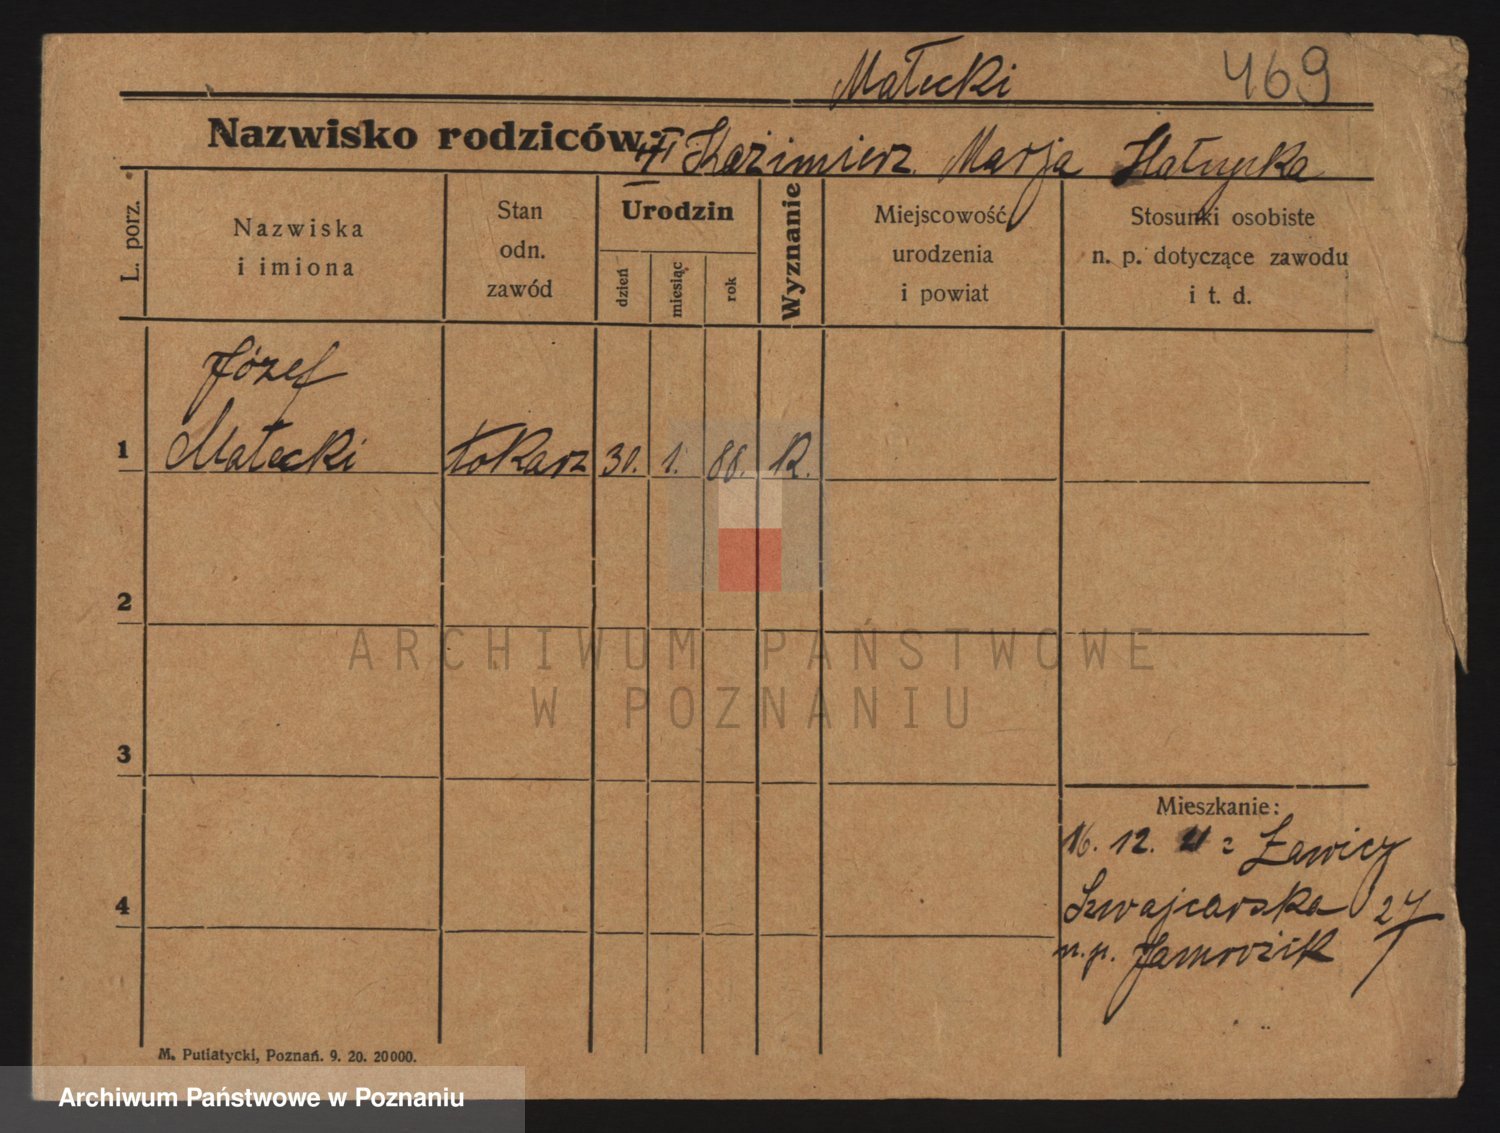 Małecki 469
Nazwisko rodziców: Kazimierz Marja
L. porz.
Nazwiska
i imiona
Stan
odn.
zawód
Urodzin
dzień
miesiąc
rok
Wyznanie
Miejscowość
urodzenia
i powiat
Stosunki osobiste
n. p. dotyczące zawodu
i t. d.
Józef
1 Małecki tokarz 30. 1. 88. R.
2
ARCHIWUM PAŃSTWOWE
W POZNANIU
3
Mieszkanie:
16. 12. Zawicz
4 Szwajcarska 27
n. p.
M. Putiatycki, Poznań. 9. 20. 20000.
Archiwum Państwowe w Poznaniu